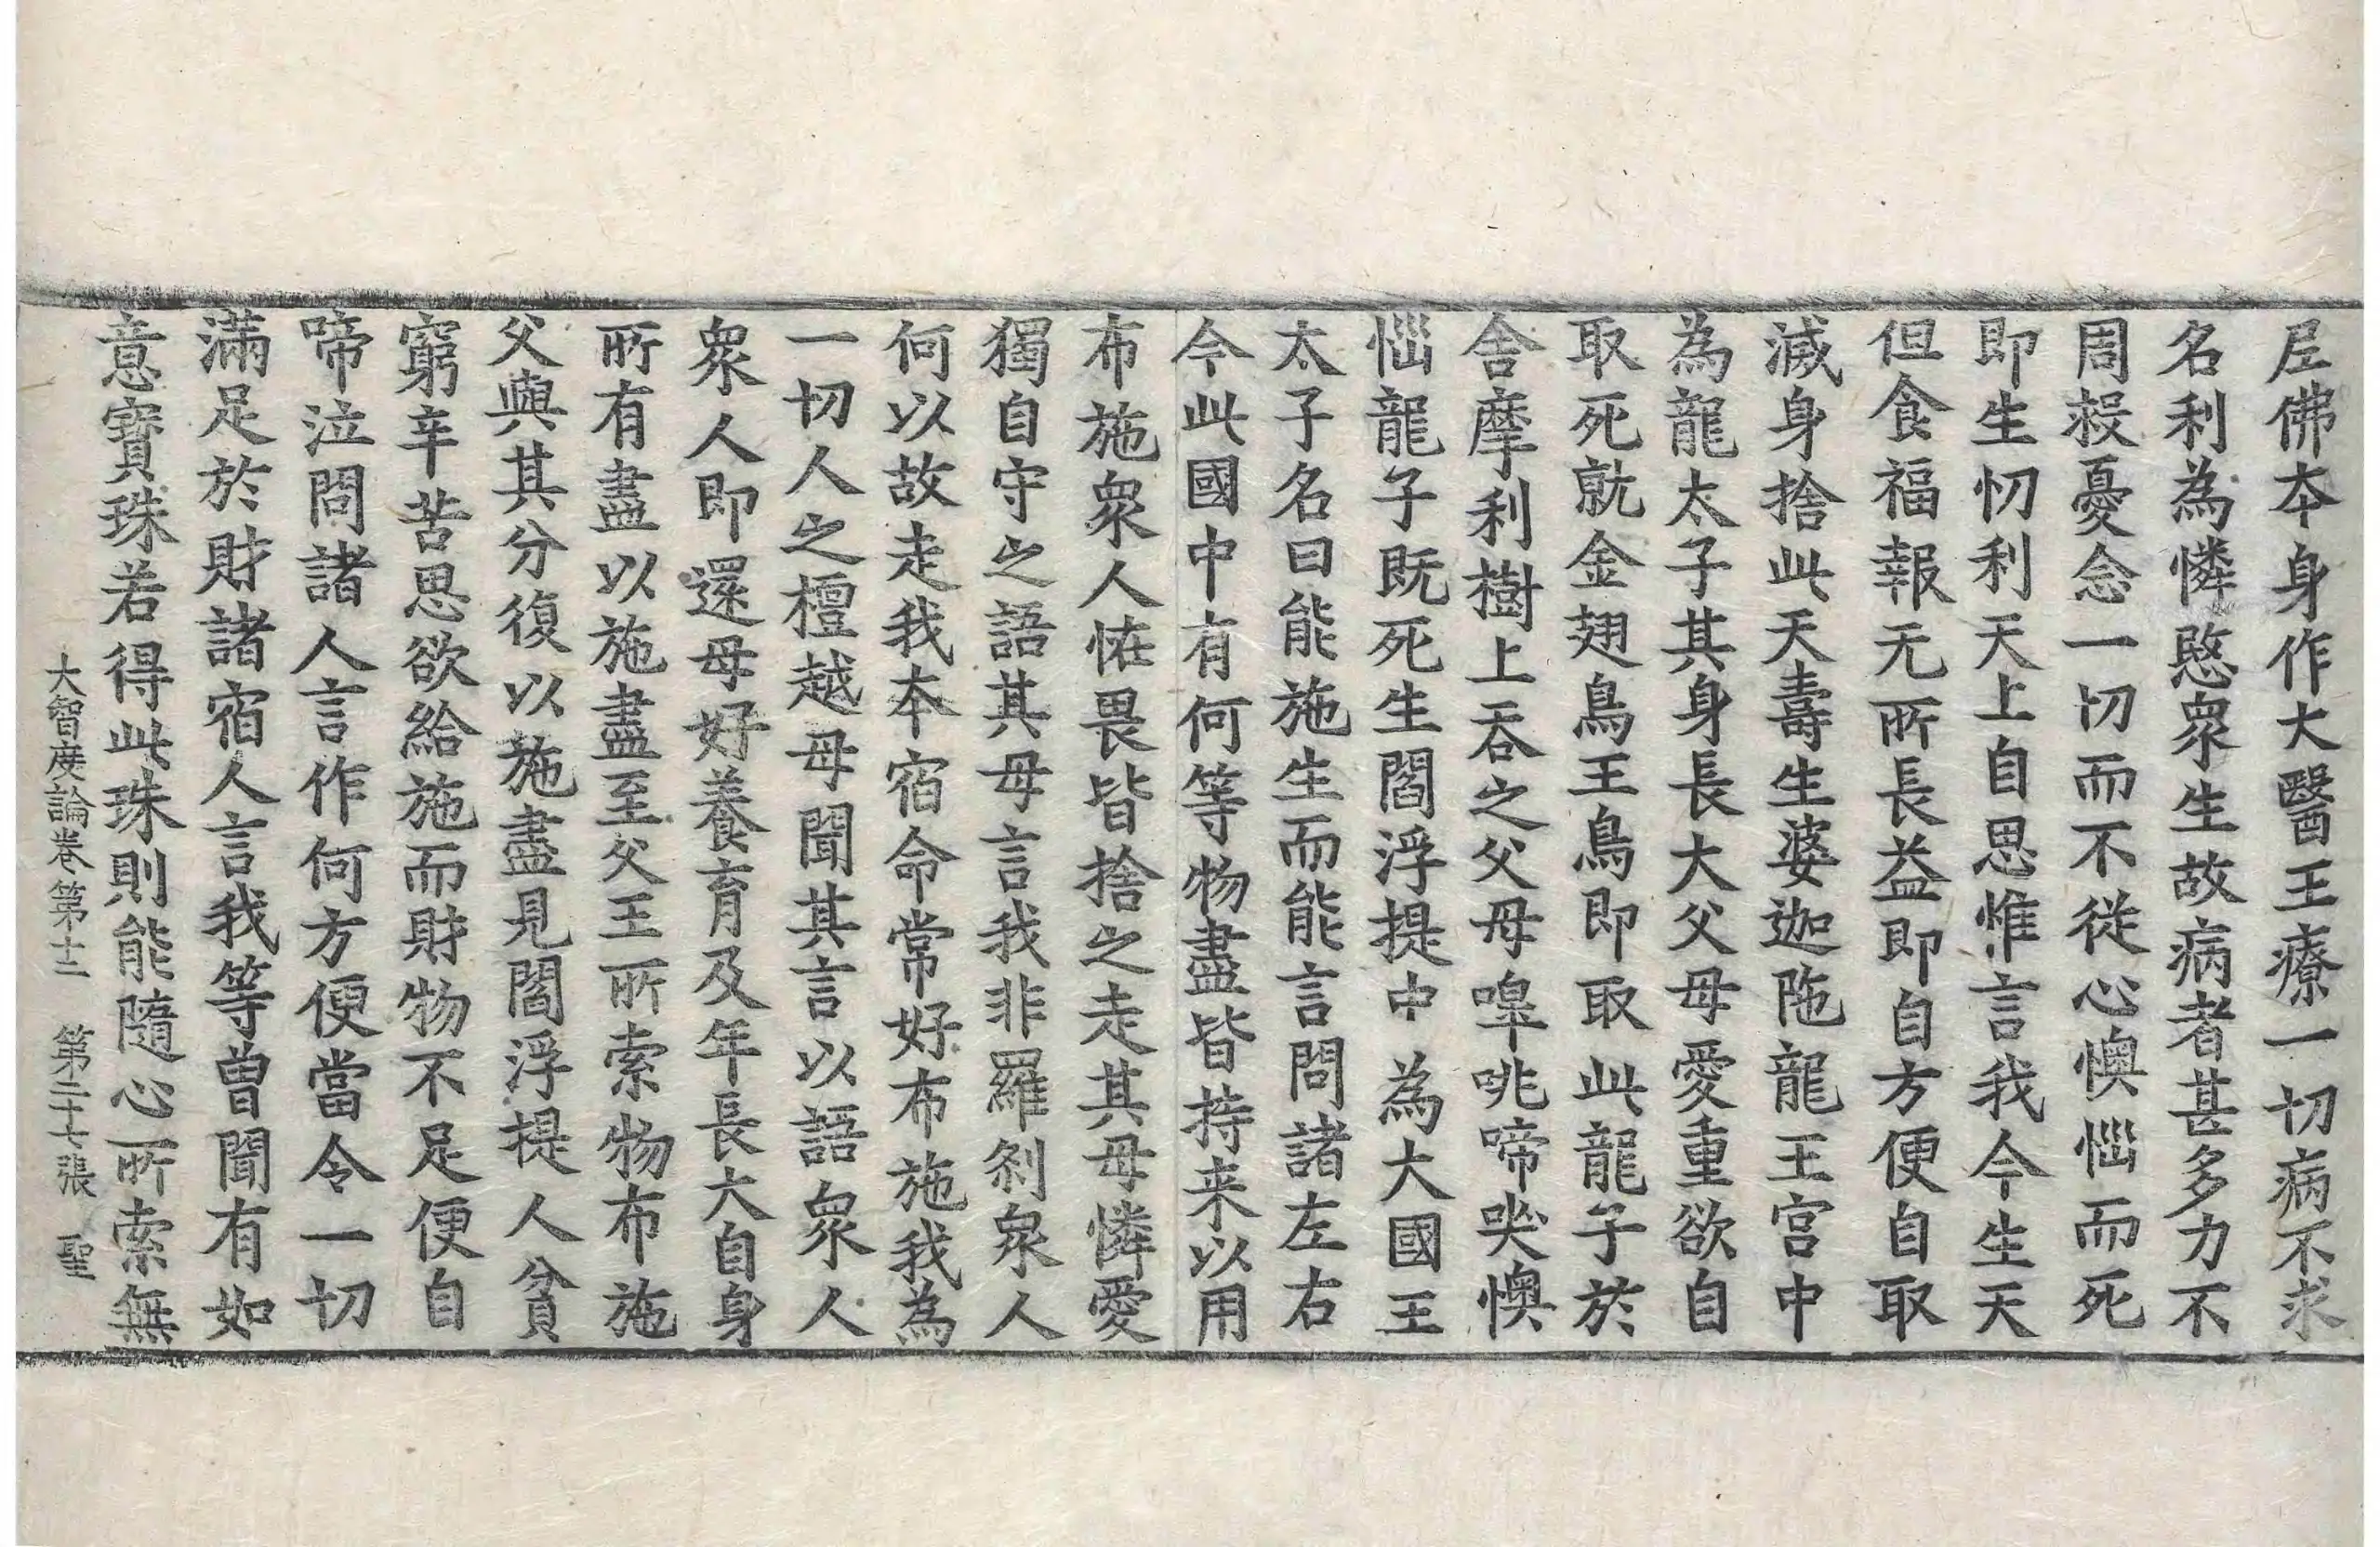 尼佛本身作大醫王療一切病不求
名利為憐愍衆生故病者甚多力不
周救憂念一切而不從心懊惱而死
即生忉利天上自思惟言我今生天
但食福報无所長益即自方便自取
滅身捨此天壽生婆迦陁龍王宫中
為龍太子其身長大父母愛重欲自
取死就金翅鳥王鳥即取此龍子於
舍摩利樹上吞之父母嘷咷啼哭懊
惱龍子既死生閻浮提中為大國王
太子名曰能施生而能言問諸左右
今此國中有何等物盡皆持来以用
布施衆人恠畏皆捨之走其母憐愛
獨自守之語其母言我非羅刹衆人
何以故走我本宿命常好布施我為
一切人之檀越母聞其言以語衆人
衆人即還母好養育及年長大自身
所有盡以施盡至父王所索物布施
父與其分復以施盡見閻浮提人貧
窮辛苦思欲給施而財物不足便自
啼泣問諸人言作何方便當令一切
滿足於財諸宿人言我等曽聞有如
意寶珠若得此珠則能隨心所索無
大智度論卷第十二　第二十七張　聖